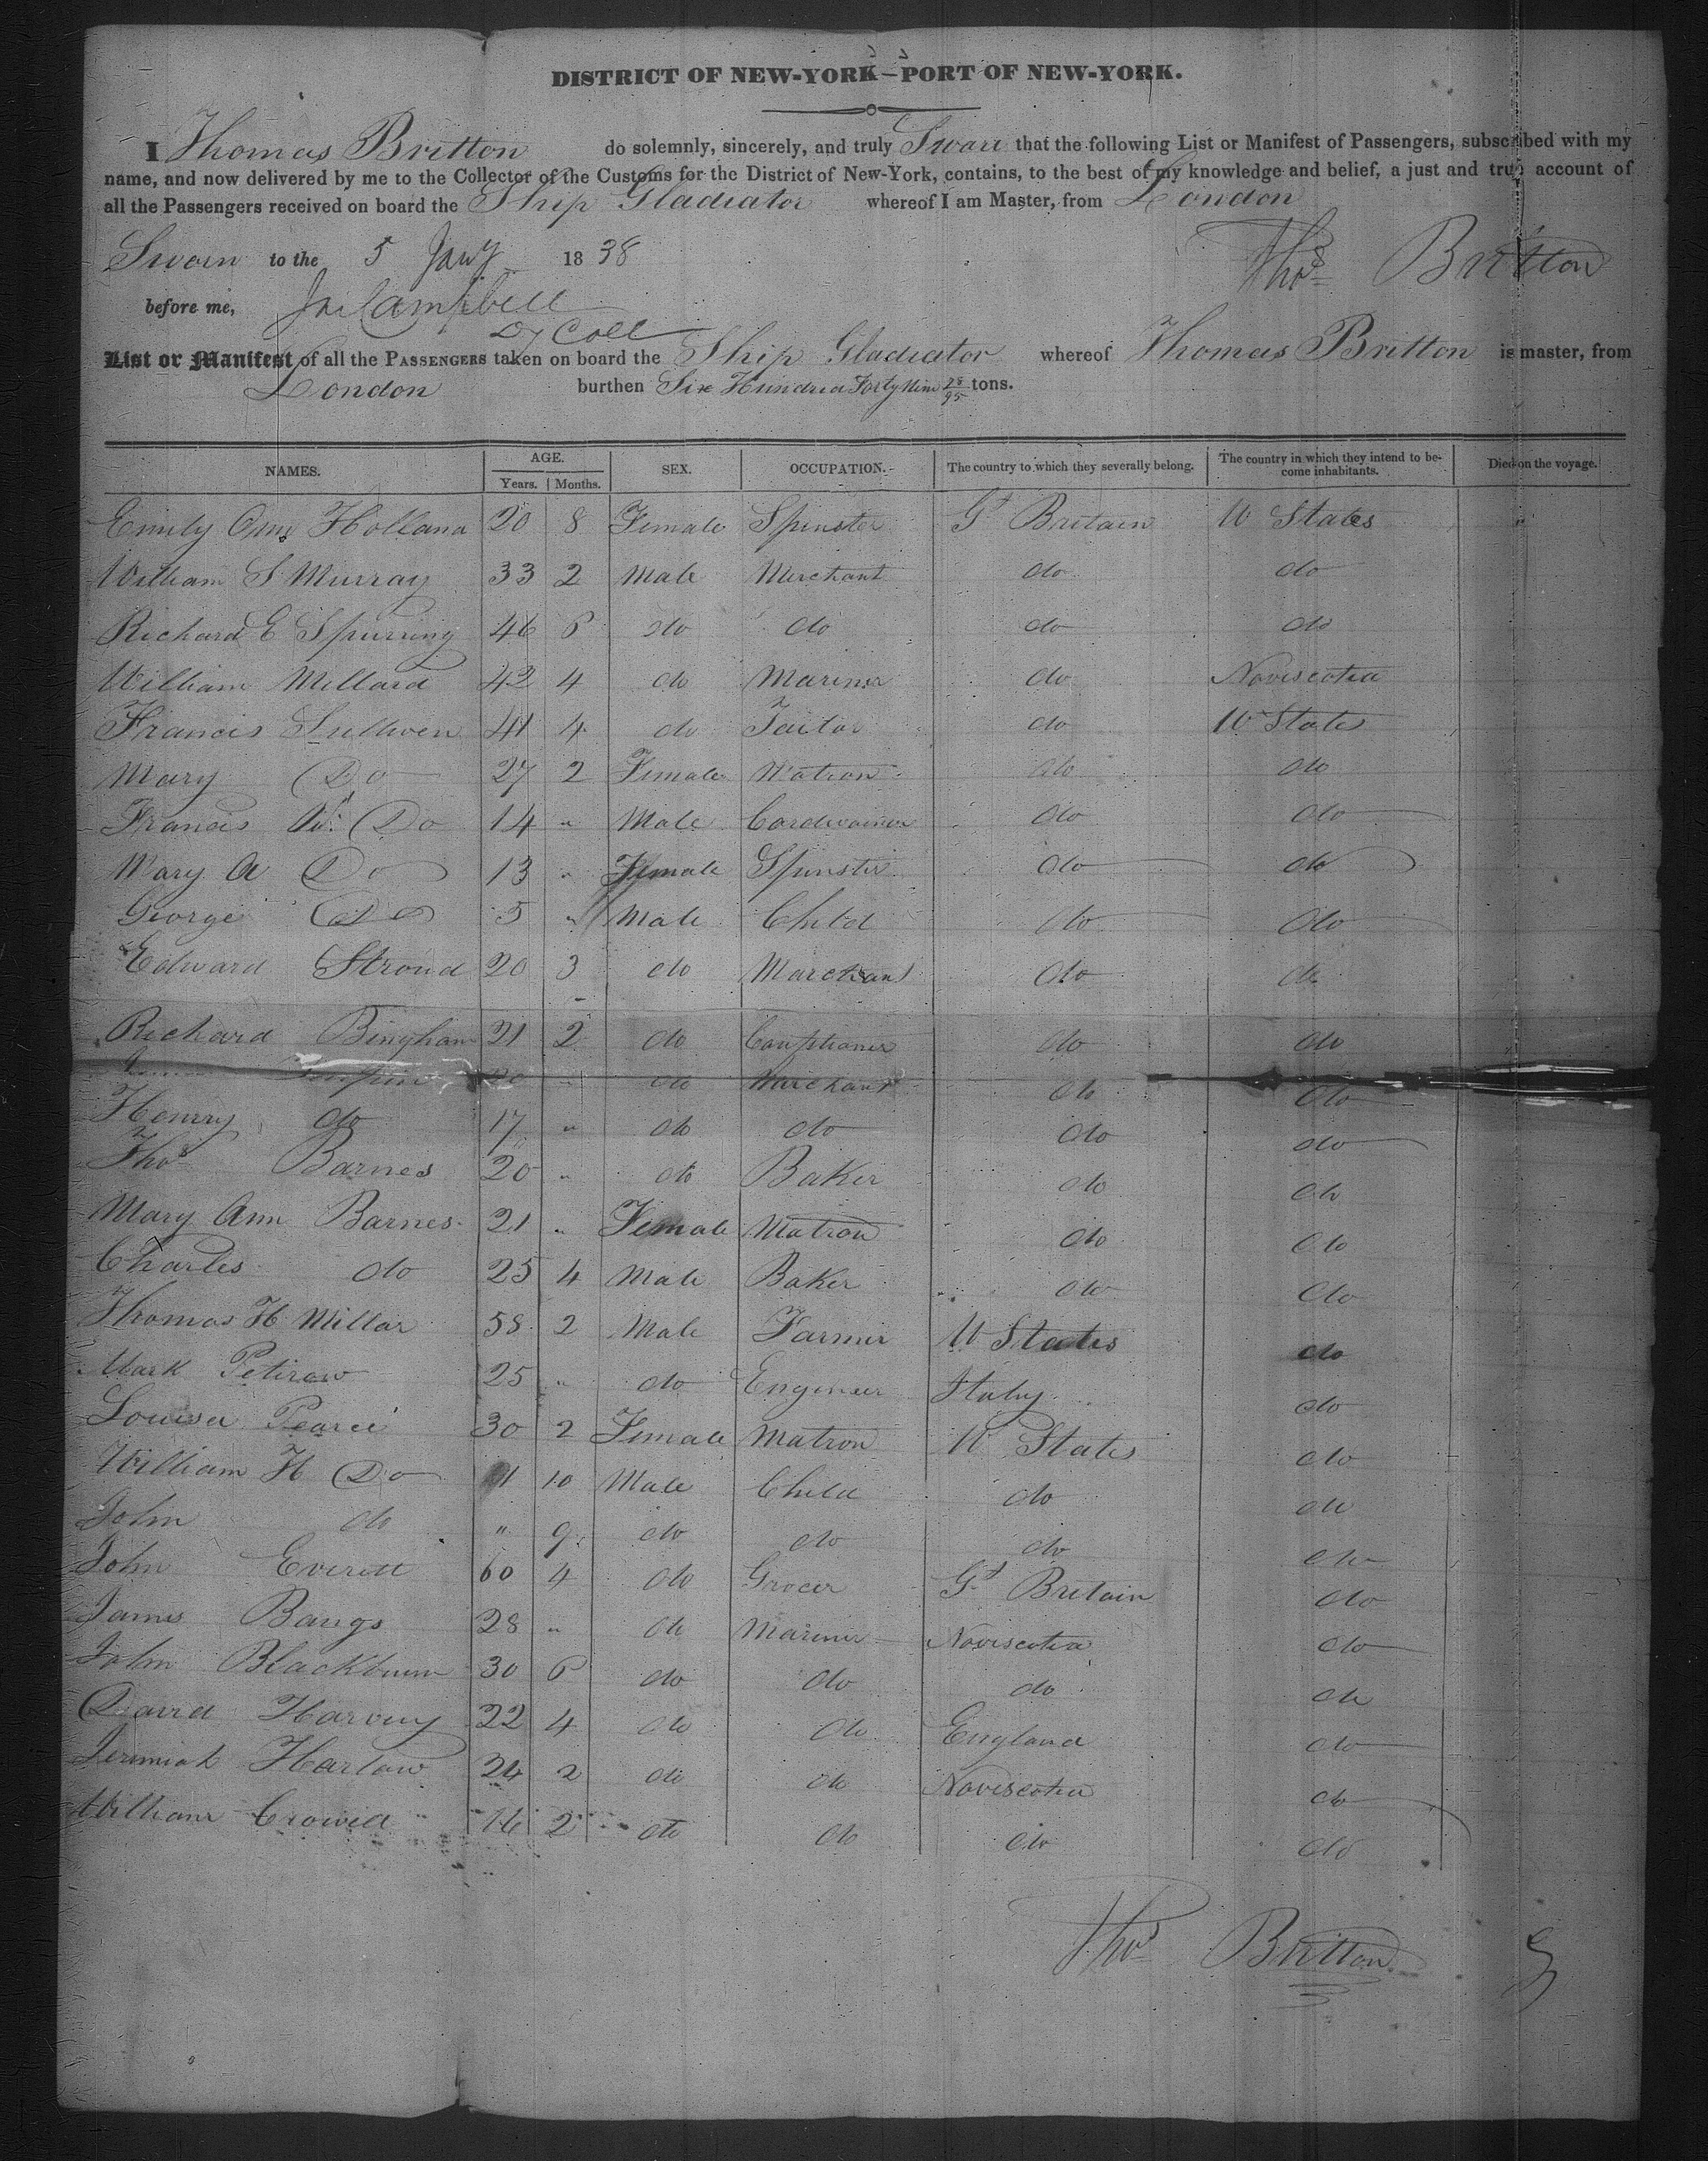 DISTRICT OF NEW-YORK—PORT OF NEW-YORK.
I Thomas Britton do solemnly, sincerely, and truly Swear that the following List or Manifest of Passengers, subscribed with my
name, and now delivered by me to the Collector of the Customs for the District of New-York, contains, to the best of my knowledge and belief, a just and true account of
all the Passengers received on board the Ship Gladiator whereof I am Master, from London
Sworn to the 5 Jany 1838 Thos Britton
before me, Campbell
Dy Coll
List or Manifest of all the PASSENGERS taken on board the Ship Gladiator whereof Thomas Britton is master, from
London burthen Six Hundred Forty Nine 28/95 tons.
NAMES. AGE. Years. Months. SEX. OCCUPATION. The country to which they severally belong. The country in which they intend to become inhabitants. Died on the voyage.
Emily Ann Holland 20 8 Female Spinster Gt Britain U States
William S Murray 33 2 Male Merchant do do
Richard E Spurring 46 6 do do do do
William Millard 42 4 do Mariner do Noviscotia
Francis Sullivan 41 4 do Tailor do U States
Mary Do 27 2 Female Matron do do
Francis Do 14 " Male Cordwainer do do
Mary A Do 13 " Female Spinster do do
George Do 5 " Male Child do do
Edward Stroud 20 3 do Marchant do do
Richard Bingham 21 2 do do do
20 " do Marchant do do
Henry do 17 " do do do do
Thos Barnes 20 " do Baker do do
Mary Ann Barnes 21 " Female Matron do do
Charles do 25 4 Male Baker do do
Thomas H Millar 58 2 Male Farmer U States do
Mark 25 " do Engineer Italy do
Louisa Pearce 30 2 Female Matron U States do
William H Do 1 10 Male Child do do
John do " 9 do do do do
John Everett 60 4 do Grocer Gt Britain do
James Bangs 28 " do Mariner Noviscotia do
John Blackburn 30 6 do do do do
David Harvey 22 4 do do England do
Jeremiah Harlow 24 2 do do Noviscotia do
William Crowel 16 2 do do do do
Thos Britton